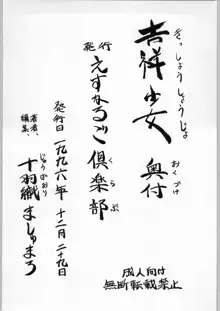 吉祥少女 奥付
きっしょうしょうじょ おくづけ
発行 えすかるご倶楽部
くらぶ
発行日 一九九六年 十二月 二十九日
著者、編集、 十羽織ましゅまろ
じゅうばおり
成人向け
無断転載禁止